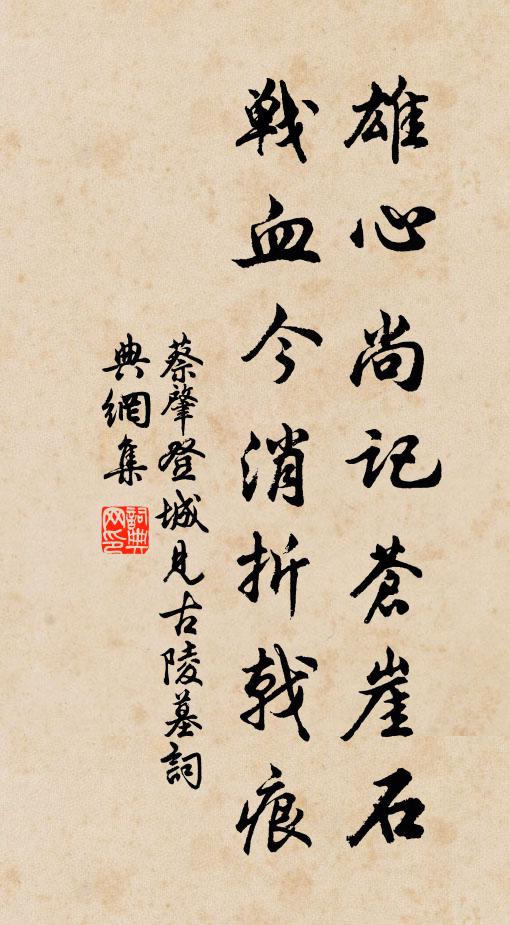 雄心尚记苍崖石
戦血今消折戟痕
蔡肇登城见古陵墓词
典網集
詞典
网印